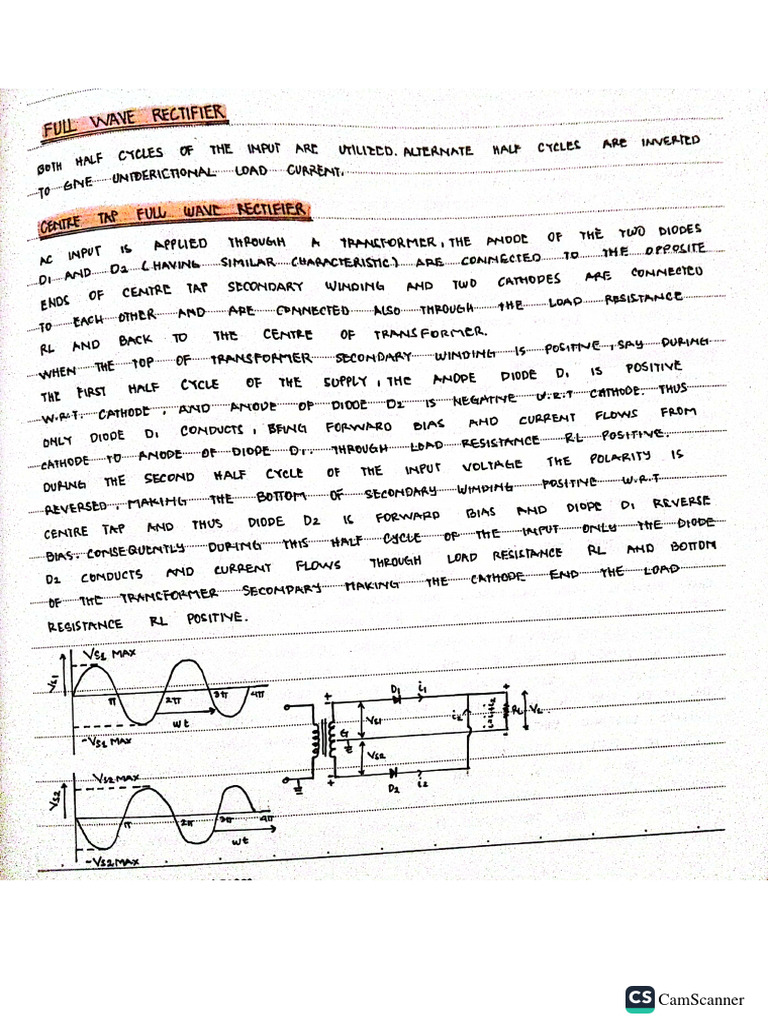 FULL WAVE RECTIFIER
BOTH HALF CYCLES OF THE INPUT ARE UTILIZED. ALTERNATE HALF CYCLES ARE INVERTED
TO GIVE UNIDERICTIONAL LOAD CURRENT.
CENTRE TAP FULL WAVE RECTIFIER
AC INPUT IS APPLIED THROUGH A TRANSFORMER, THE ANODE OF THE TWO DIODES
D1 AND D2 (HAVING SIMILAR CHARACTERISTIC) ARE CONNECTED TO THE OPPOSITE
ENDS OF CENTRE TAP SECONDARY WINDING AND TWO CATHODES ARE CONNECTED
TO EACH OTHER AND ARE CONNECTED ALSO THROUGH THE LOAD RESISTANCE
RL AND BACK TO THE CENTRE OF TRANSFORMER.
WHEN THE TOP OF TRANSFORMER SECONDARY WINDING IS POSITIVE, SAY DURING
THE FIRST HALF CYCLE OF THE SUPPLY, THE ANODE DIODE D1 IS POSITIVE
W.R.T. CATHODE, AND ANODE OF DIODE D2 IS NEGATIVE W.R.T CATHODE. THUS
ONLY DIODE D1 CONDUCTS, BEING FORWARD BIAS AND CURRENT FLOWS FROM
CATHODE TO ANODE OF DIODE D1. THROUGH LOAD RESISTANCE RL POSITIVE.
DURING THE SECOND HALF CYCLE OF THE INPUT VOLTAGE THE POLARITY IS
REVERSED, MAKING THE BOTTOM OF SECONDARY WINDING POSITIVE W.R.T
CENTRE TAP AND THUS DIODE D2 IS FORWARD BIAS AND DIODE D1 REVERSE
BIAS. CONSEQUENTLY DURING THIS HALF CYCLE OF THE INPUT ONLY THE DIODE
D2 CONDUCTS AND CURRENT FLOWS THROUGH LOAD RESISTANCE RL AND BOTTOM
OF THE TRANSFORMER SECONDARY MAKING THE CATHODE END THE LOAD
RESISTANCE RL POSITIVE.
VS1 MAX
VS1
π 2π 3π 4π
wt
-VS1 MAX
D1 i1
VS1
G
VS2
RL VL
D2 i2
VS2 MAX
VS2
π 2π 3π 4π
wt
-VS2 MAX
CS CamScanner